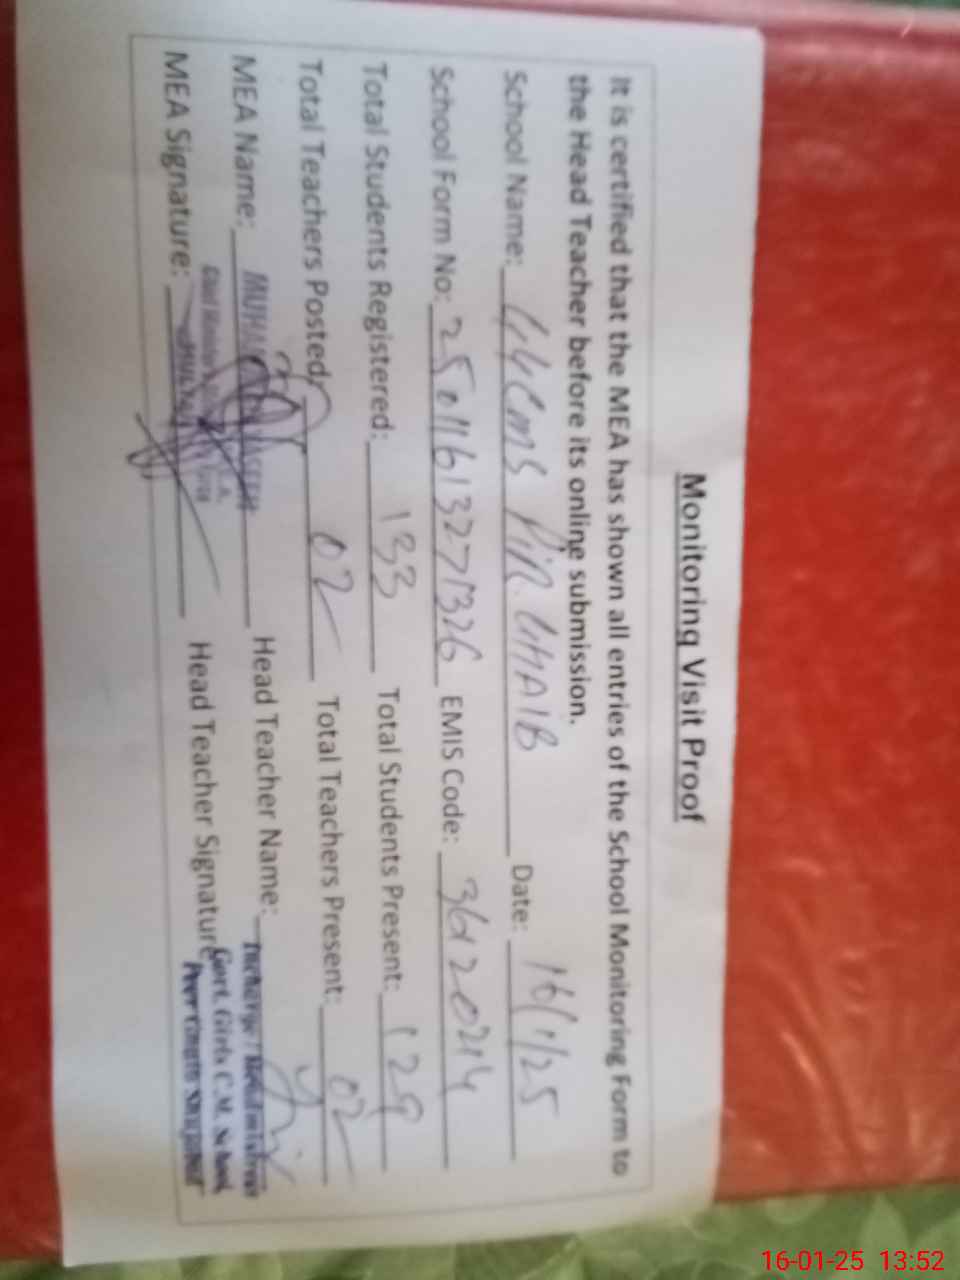 Monitoring Visit Proof
It is certified that the MEA has shown all entries of the School Monitoring Form to
the Head Teacher before its online submission.
School Name: GGCMS PIR. GHAIB Date: 16/1/25
School Form No: EMIS Code: 36120214
Total Students Registered: 133 Total Students Present: 129
Total Teachers Posted: 02 Total Teachers Present: 02
MEA Name: Head Teacher Name: Incharge / Headmistress
Govt. Girls C.M. School,
MEA Signature: Head Teacher Signature
16-01-25 13:52